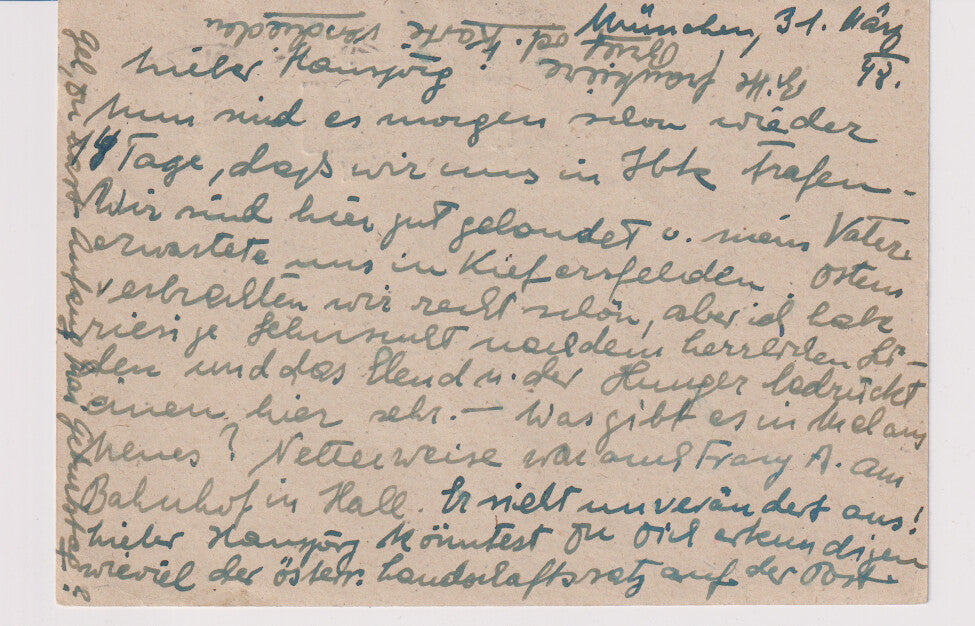 München, 31. März
48.
Lieber Hansjörg!
Nun sind es morgen schon wieder
14 Tage, daß wir uns in Ibk trafen –
Wir sind hier gut gelandet u. mein Vater
erwartete uns in Kiefersfelden. Ostern
verbrachten wir recht schön, aber ich habe
riesige Sehnsucht nach dem herrlichen Sü-
den und das Elend u. der Hunger bedrückt
einen hier sehr. – Was gibt es in Meran
Neues? Netterweise war auch Franz A. am
Bahnhof in Hall. Er sieht unverändert aus!
Lieber Hansjörg könntest Du Dich erkundigen
wieviel der österr. Landschaftssatz auf der Post
Gel, Du hast Anfang Mai Geburtstag?
Bitte frankiere
Brief od. Karte
verschieden